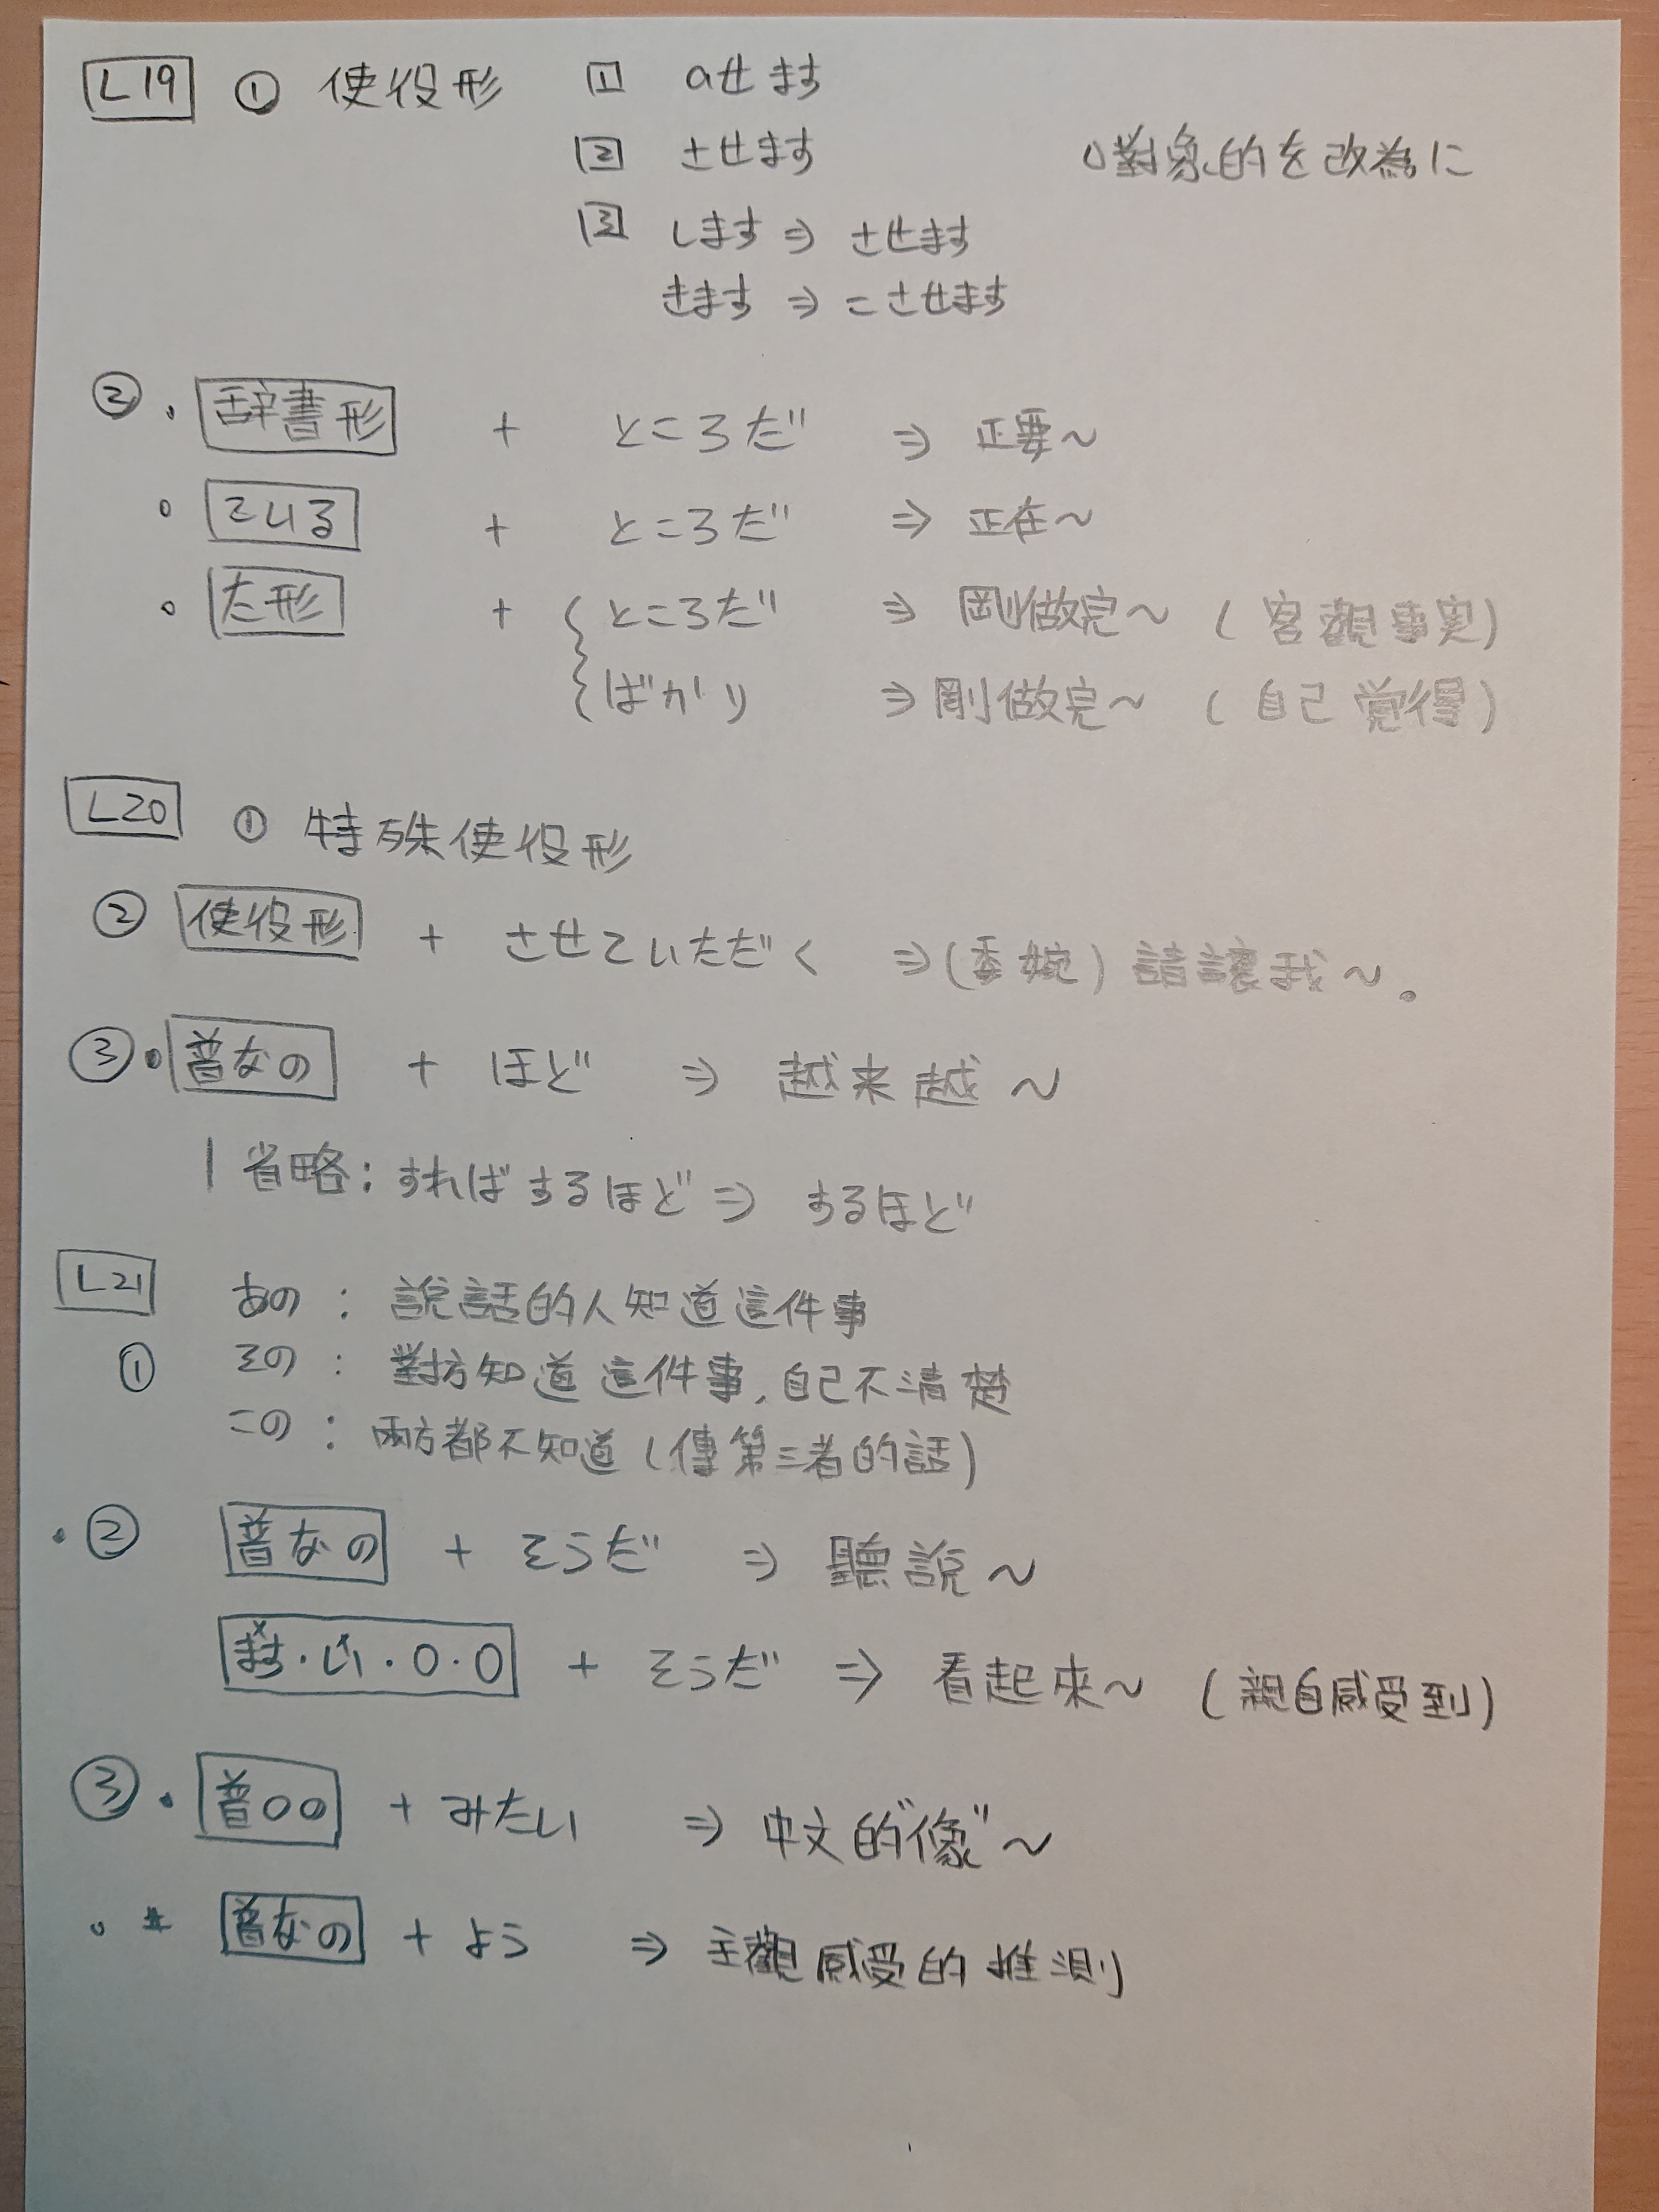 L19 ① 使役形 1 aせます
2 させます
○對象的を改為に
3 します ⇒ させます
きます ⇒ こさせます
② 。 辞書形 + ところだ ⇒ 正要~
。 ている + ところだ ⇒ 正在~
。 た形 + { ところだ ⇒ 剛做完~ (客觀事実)
ばかり ⇒ 剛做完~ (自己覚得)
L20 ① 特殊使役形
② 使役形 + させていただく ⇒ (委婉) 請讓我~。
③ • 普なの + ほど ⇒ 越来越~
| 省略: すればするほど ⇒ するほど
L21 あの : 說話的人知道這件事
① その : 對方知道這件事, 自己不清楚
この : 兩方都不知道 (傳第三者的話)
• ② 普なの + そうだ ⇒ 聽說~
ます・い・O・O + そうだ ⇒ 看起來~ (親自感受到)
③ • 普OO + みたい ⇒ 中文的"像"~
。 * 普なの + よう ⇒ 主觀感受的推測